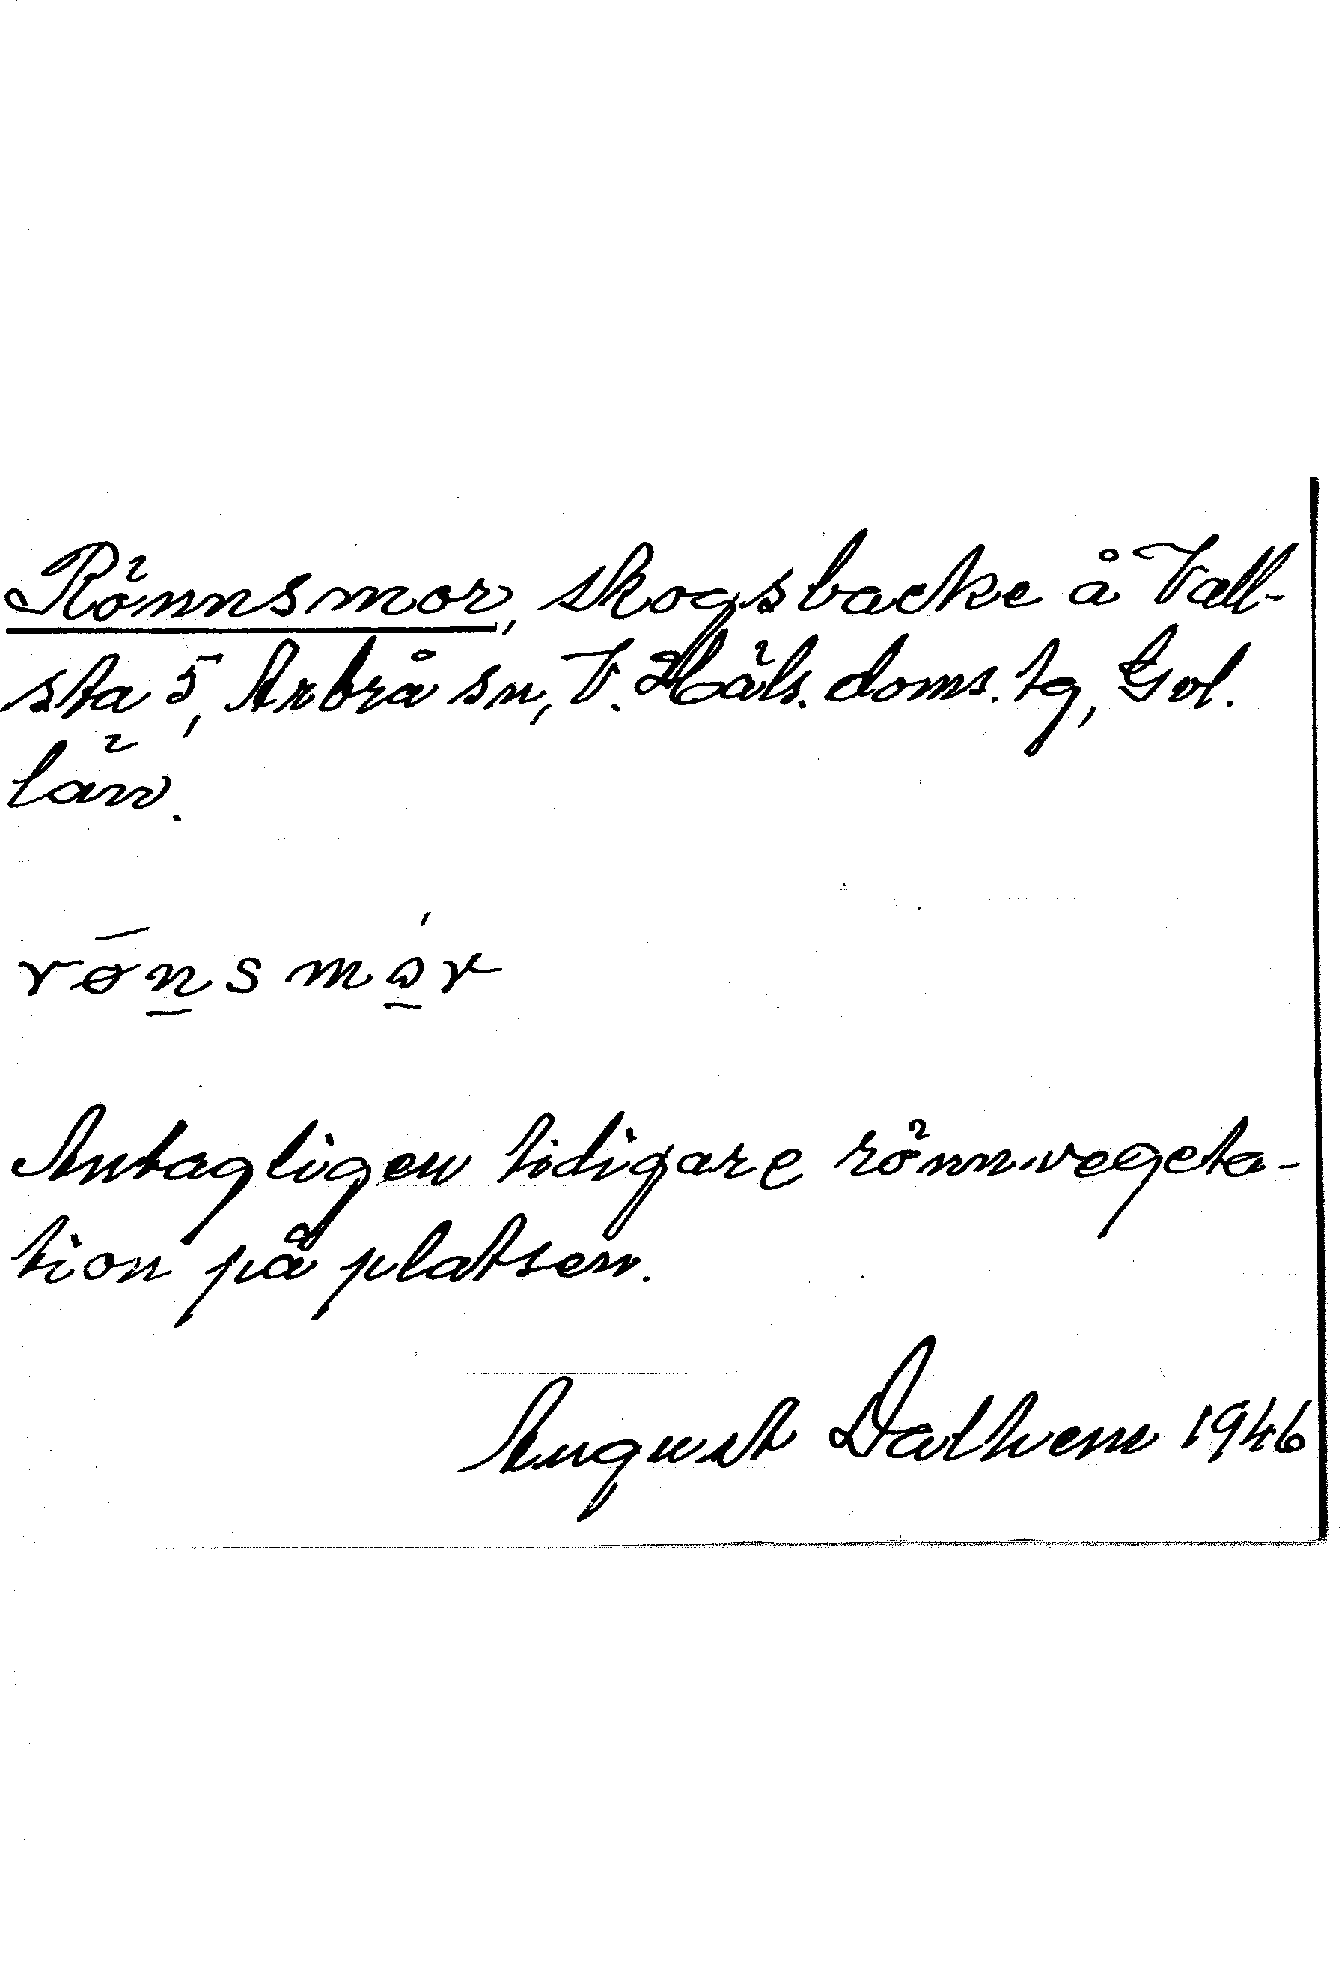 Rönnsmor, skogsbacke å Vall-
sta 5, Arbrå sn, V. Häls. doms. tg, Gvl.
län.
rø̄n̲smó̲r
Antagligen tidigare rönnvegeta-
tion på platsen.
August Dalhem 1946